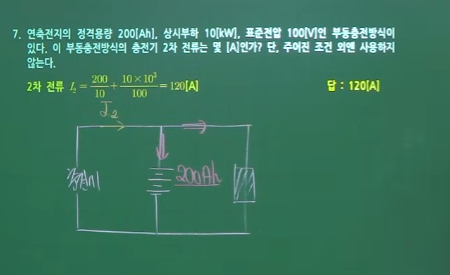 7. 연축전지의 정격용량 200[Ah], 상시부하 10[kW], 표준전압 100[V]인 부동충전방식이
있다. 이 부동충전방식의 충전기 2차 전류는 몇 [A]인가? 단, 주어진 조건 외엔 사용하지
않는다.
2차 전류 I₂ = 200/10 + 10×10³/100 = 120[A] 답 : 120[A]
I₂
200Ah